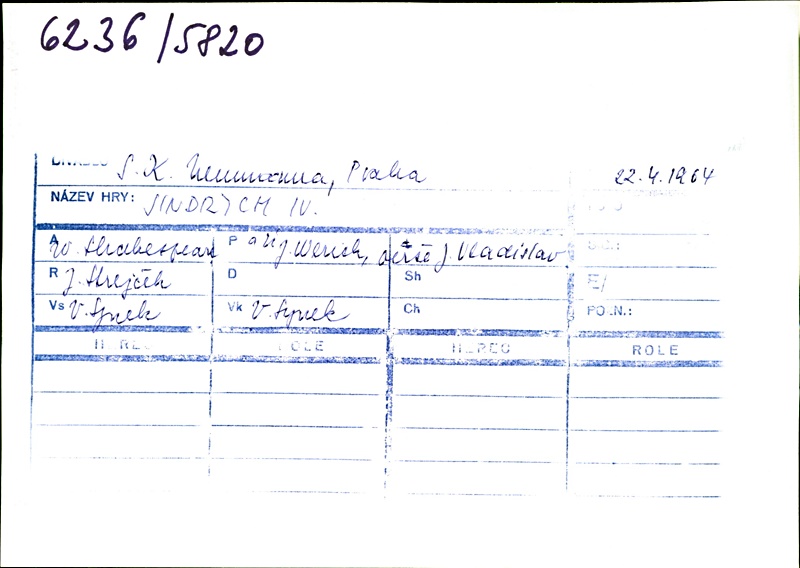 6236/5820
DIVADLO S. K. Neumanna, Praha 22.4.1964
NÁZEV HRY: JINDŘICH IV.
A W. Shakespeare P a úpr. J. Werich, verše J. Vladislav
R J. Strejček D Sh
Vs V. Synek Vk V. Synek Ch PO.N.:
HEREC ROLE HEREC ROLE